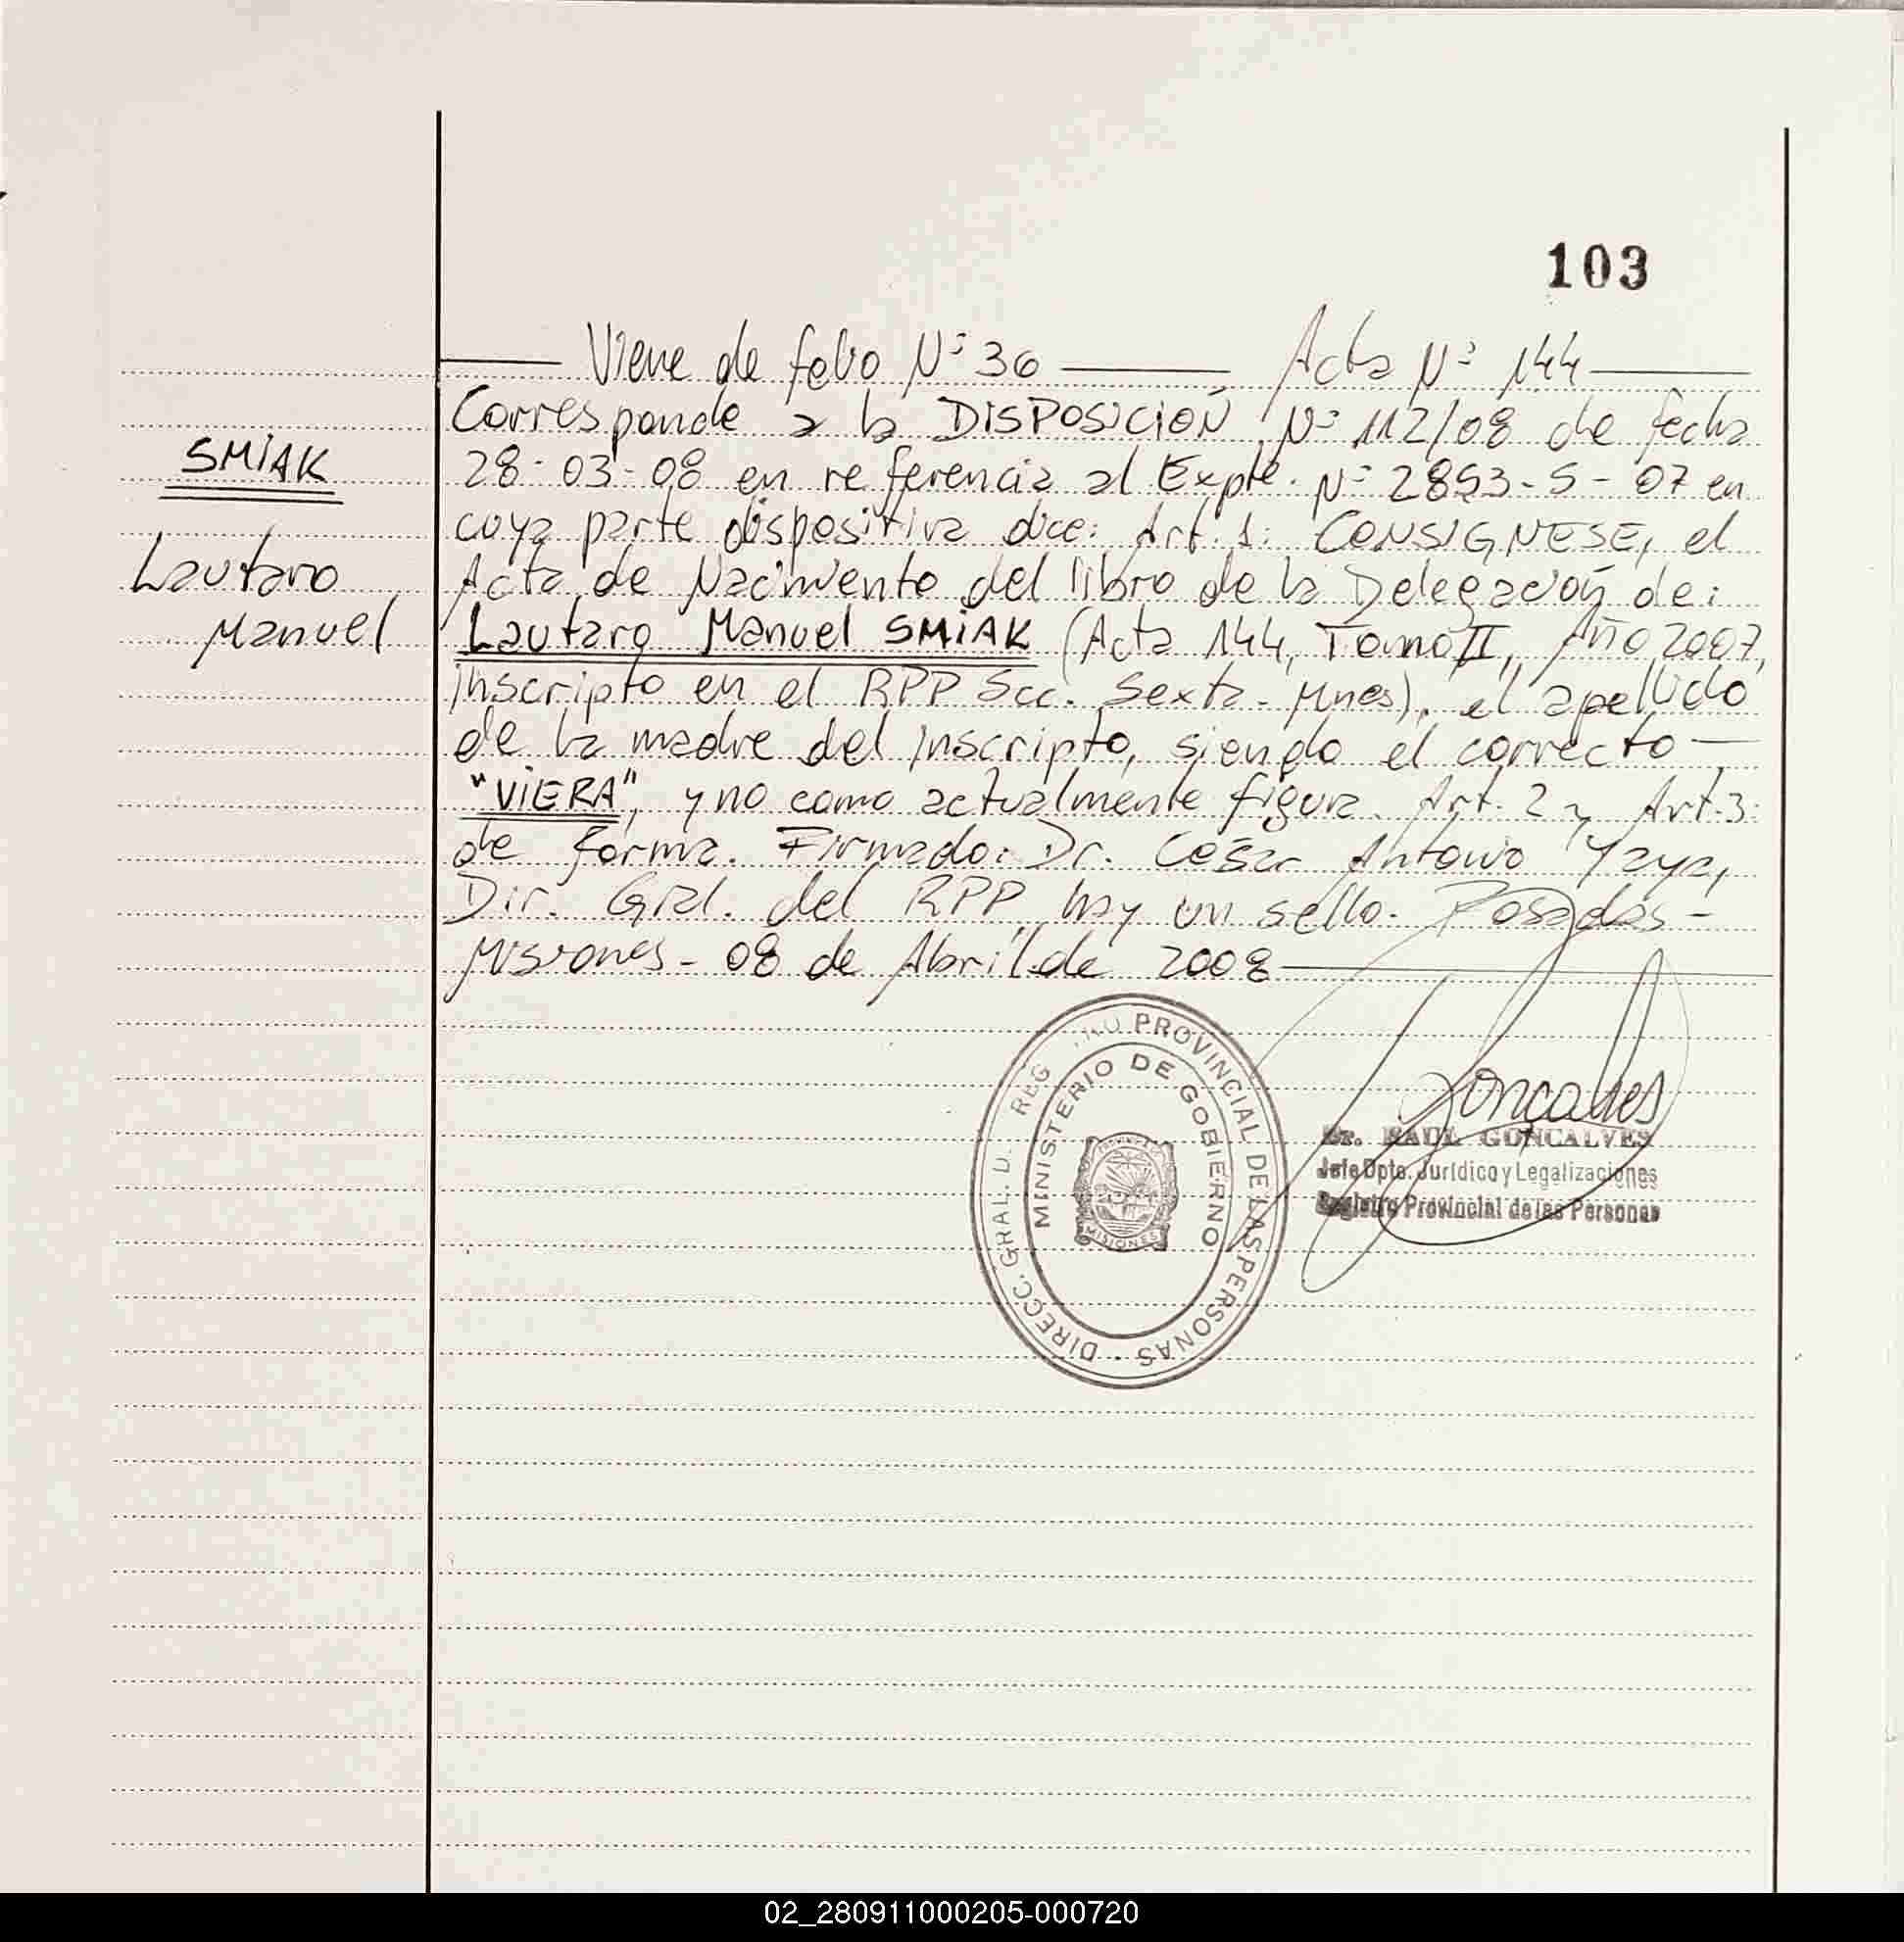 103
Viene de folio Nº 36 Acta Nº 144
Corresponde a la DISPOSICIÓN Nº 112/08 de fecha
SMIAK
28-03-08 en referencia al Expte. Nº 2853-S-07 en
cuya parte dispositiva dice: Art. 1: CONSIGNESE, el
Lautaro
Acta de Nacimiento del libro de la Delegación de:
Manuel
Lautaro Manuel SMIAK (Acta 144, Tomo II, Año 2007,
inscripto en el RPP Scc. Sexta - Mnes), el apellido
de la madre del inscripto, siendo el correcto
"VIERA", y no como actualmente figura. Art. 2 y Art. 3:
de forma. Firmado: Dr. César Antonio Yaya,
Dir. Gral. del RPP, hay un sello. Posadas -
Misiones - 08 de Abril de 2008
DIRECC. GRAL. D. REG PROVINCIAL DE LAS PERSONAS
MINISTERIO DE GOBIERNO
MISIONES
Goncalves
Dr. RAUL GONCALVES
Jefe Dpto. Jurídico y Legalizaciones
Registro Provincial de las Personas
02_280911000205-000720